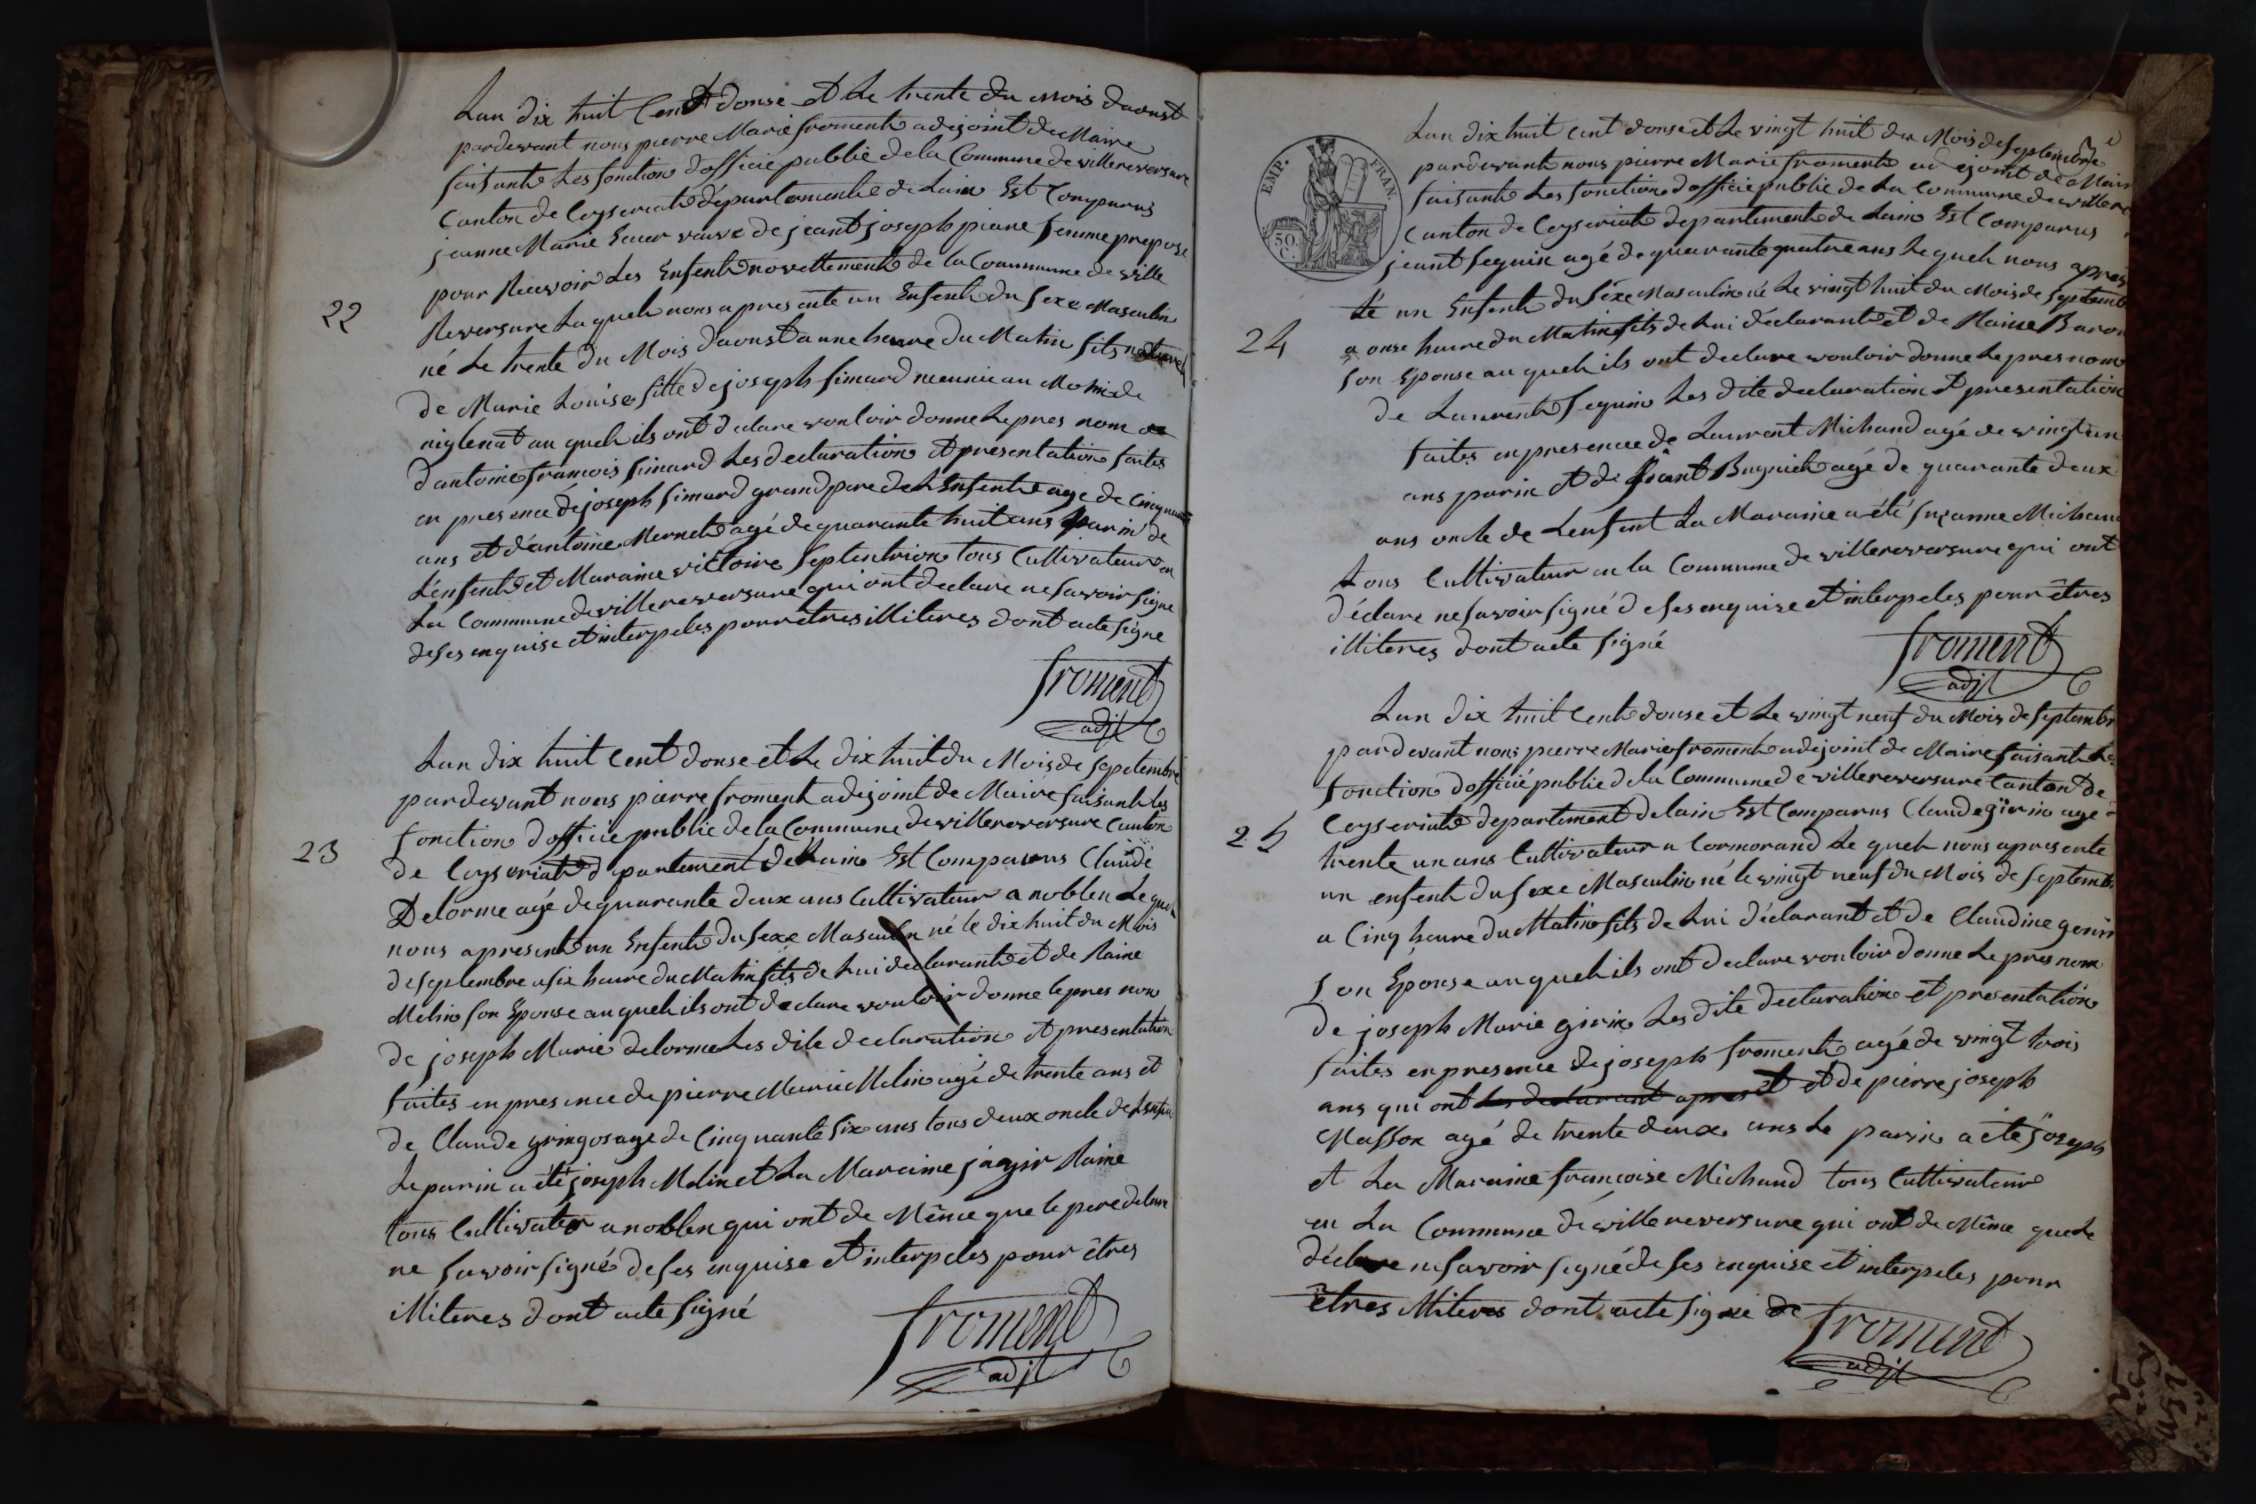 Lan dix huit Cent donse et Le trente du Mois daoust
pardevant nous pierre Marie froment adejoint de Maire
faisante Les fonction dofficie public de la Commune de villereversure
Canton de Ceyseriat département de Lain Est Comparus
jeanne Marie veuve de jeant joseph piene femme prepose
pour Recevoir Les Enfent novellement de la Commune de ville
Reversure La queh nous apresente un Enfent du Sexe Masculin
22
né Le trente du Mois daoust a une heure du Matin fils naturel
de Marie Louise fille de joseph Simard meunie au Moulin de
auqueh ils ont declare vouloir donne Le pres nom
dantoine framcois Simard Les declaration et presentation faites
en presence de joseph Simard grand pere de LEnfent age de Cinquante
ans et dantoine agé de quarante huit ans parin de
Lenfent et Maraine victoire Septentrion tous Cultivateur en
La Commune de villereversure qui ont declare ne savoir signe
de ses enquise et interpeles pour etres illiteres dont acte signe
froment
adjt
Lan dix huit Cent donse et Le dix huit du Mois de Septembre
pardevant nous pierre froment adejoint de Maire faisant Les
fonction dofficie public de la Commune de villereversure Canton
23
de Ceyseriat département de Lain Est Comparus Claude
Delorme agé de quarante deux ans Cultivateur a noblen Le queh
nous apresente un Enfent du Sexe Masculin né le dix huit du Mois
de Septembre a six heure du Matin fils de Lui declarant et de Raine
Melin son Eponse auqueh ils ont declare vouloir donne le pres nom
de joseph Marie delorme Les dite declaration et presentation
faites en presence de pierre Marie Melin agé de trente ans et
de Claude gringos age de Cinquante six ans tous deux oncle de Lenfen
Le parin a été joseph Melin et La Maraine Raine
tous Cultivater a noblen qui ont de Même que le pere declare
ne savoir signé de ses enquise et interpeles pour êtres
illiteres dont acte signé
froment
adjt
EMP. FRAN.
50 C.
Lan dix huit cent donse et Le vingt huit du Mois de Septembre
pardevant nous pierre Marie froment adejoint de Maire
faisante Les fonction dofficie public de La Commune de villere
canton de Ceyseriat departement de Lain Est Comparus
jeant Seguin agé de quarante quatre ans Le queh nous apresen
té un Enfent du Séxe Masculin né Le vingt huit du Mois de Septemb
24
a onse heure du Matin fils de Lui déclarant et de Raine Baron
son Eponse au queh ils ont declare vouloir donne Le pres nom
de Laurent Seguin Les dite declaration et presentation
faites en presence de Laurent Michaud agé de vingt un
ans parin et de jeant Buguet agé de quarante deux
ans oncle de Lenfent La Maraine a été suzanne Michau
tous Cultivateur en la Commune de villereversure qui ont
déclare ne savoir signé de ses enquise et interpeles pour êtres
illiteres dont acte signé
froment
adjt
Lan dix huit cent donse et Le vingt neuf du Mois de Septembr
pardevant nous pierre Marie froment adejoint de Maire faisant Les
fonction dofficié public de la Commune de villereversure Canton de
Ceyseriat departement de lain Est Comparus Claude girin age
25
trente un ans Cultivateur a Cormorand Le queh nous apresente
un enfent du Sexe Masculin né le vingt neuf du Mois de Septemb
a Cinq heure du Matin fils de Lui déclarant et de Claudine genin
son Eponse auqueh ils ont declare vouloir donne Le pres nom
de joseph Marie girin Les dite declaration et presentation
faites en presence de joseph froment agé de vingt trois
ans qui ont les declarant apres et et de pierre joseph
Masson agé de trente deux ans Le parin a été joseph
et La Maraine francoise Michaud tous Cultivateur
en La Commune de villereversure qui ont de Même que le
déclare ne savoir signé de ses enquise et interpeles pour
êtres illiteres dont acte signé de
froment
adjt